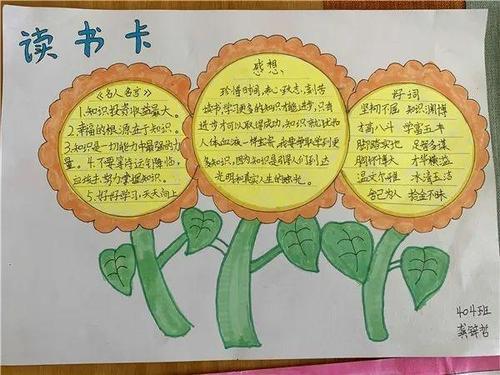 读书卡
《名人名言》
1.知识投资收益最大。
2.幸福的根源在于知识。
3.知识是一切能力中最强的力
量。4.不要等待运气降临，
应该去努力掌握知识。
5.好好学习，天天向上
感想
珍惜时间，
读书，学习更多的知识才能进步，只有
进步才可以取得成功，知识就犹如
人体血液一样宝贵，我要争取学到更
多知识，因为知识是引导人们到达
光明和真实人生的烛光。
好词
坚韧不屈 知识渊博
才高八斗 学富五车
脚踏实地 足智多谋
胸怀博大 才华横溢
温文尔雅 冰清玉洁
舍己为人 拾金不昧
404班